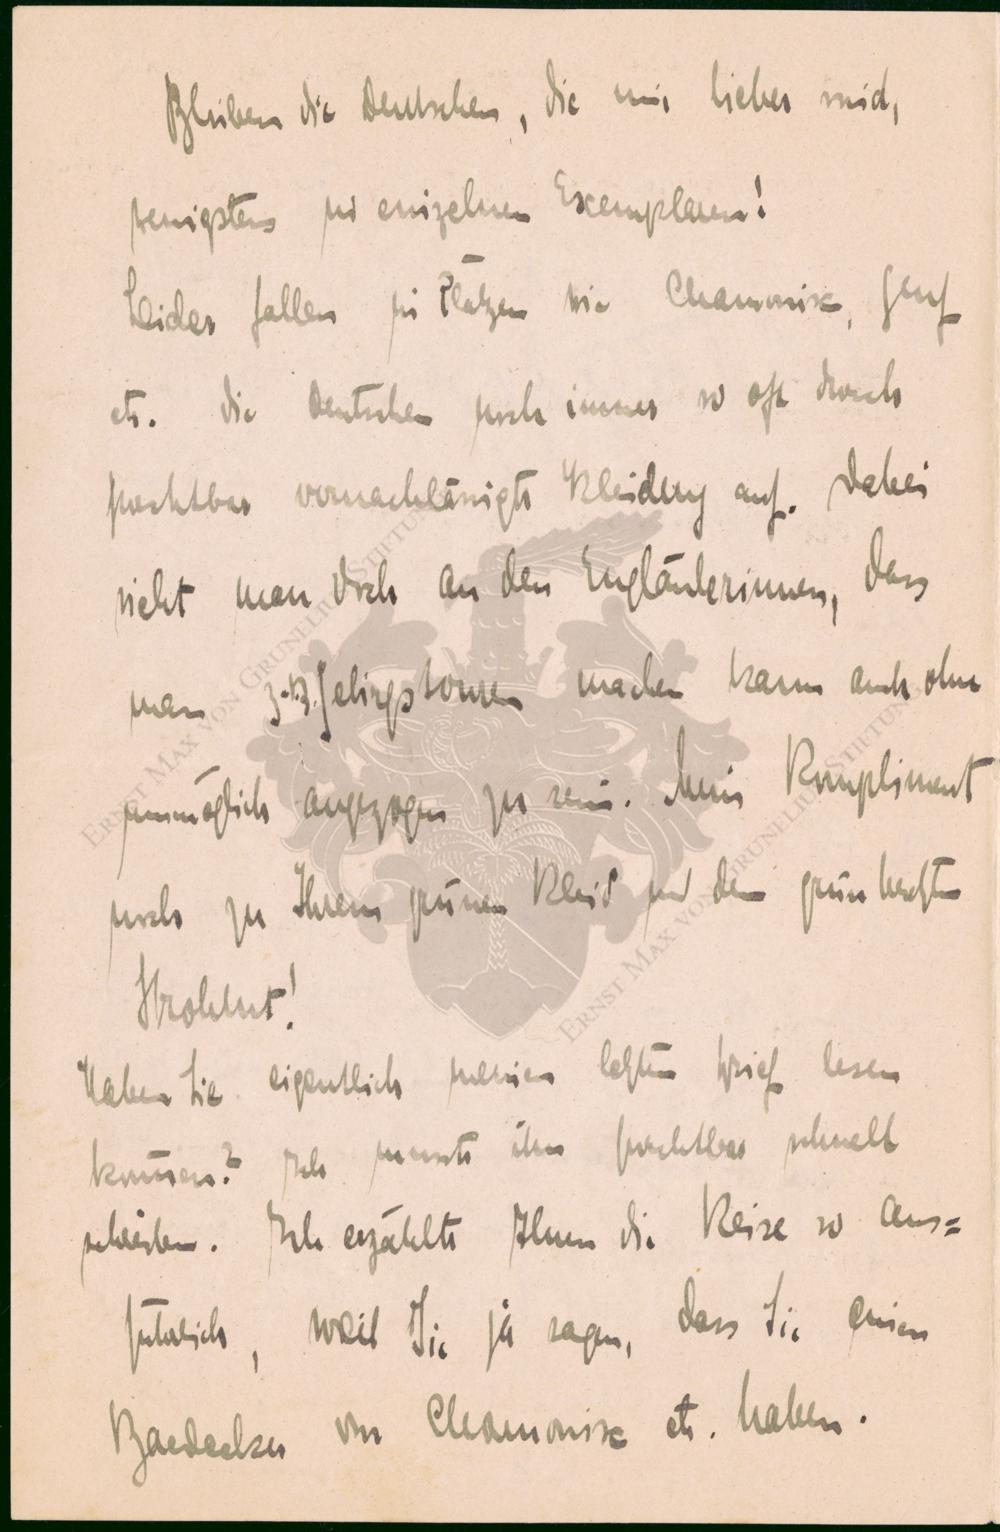 Bleiben die Deutschen, die mir lieber sind,
wenigstens in einzelnen Exemplaren!
Leider fallen in Plätzen wie Chamonix, Genf
etc. die Deutschen noch immer so oft durch
furchtbar vernachlässigte Kleidung auf. Dabei
sieht man doch an den Engländerinnen, dass
man z.B. Gebirgstouren machen kann auch ohne
unmöglich angezogen zu sein. Mein Kompliment
noch zu Ihrem grünen Kleid und dem grün besetzten
Strohhut!
Haben Sie eigentlich meinen letzten Brief lesen
können? Ich musste ihn furchtbar schnell
schreiben. Ich erzählte Ihnen die Reise so aus=
führlich, weil Sie ja sagen, dass Sie einen
Baedecker von Chamonix etc. haben.
ERNST MAX VON GRUNELIUS-STIFTUNG
ERNST MAX VON GRUNELIUS-STIFTUNG